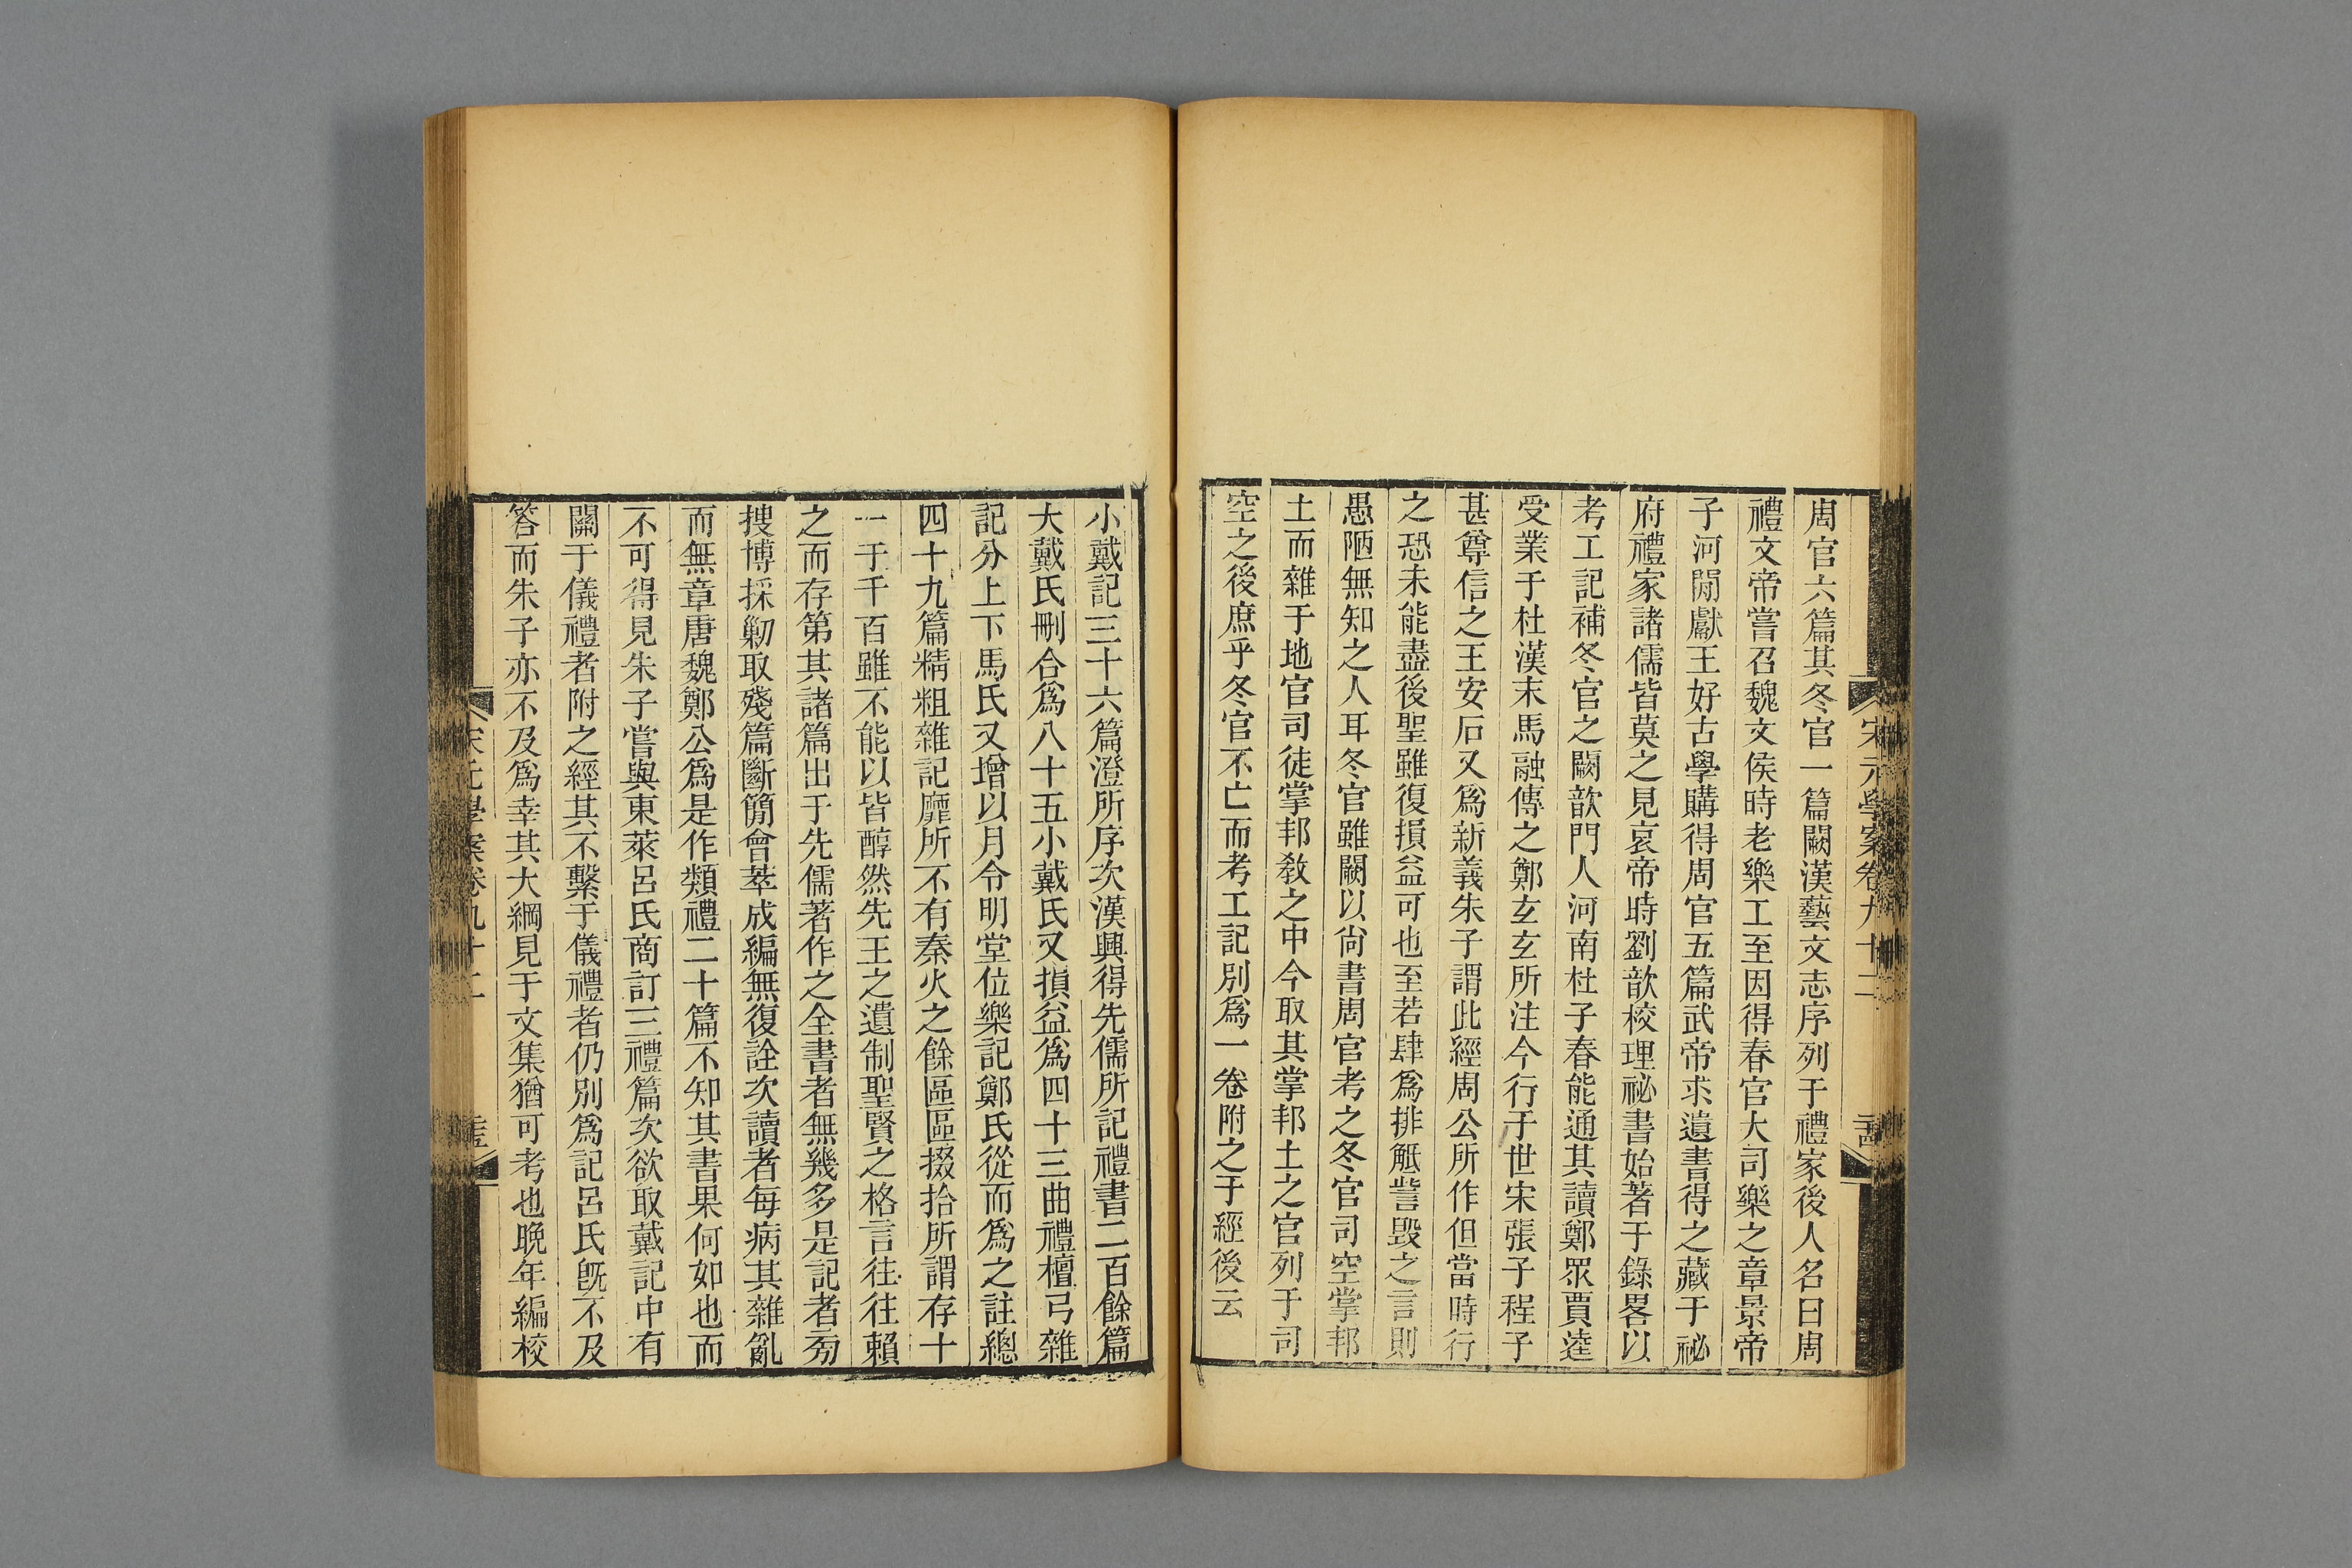 宋元學案卷九十二
周官六篇其冬官一篇闕漢藝文志序列于禮家後人名曰周
禮文帝嘗召魏文侯時老樂工至因得春官大司樂之章景帝
子河閒獻王好古學購得周官五篇武帝求遺書得之藏于祕
府禮家諸儒皆莫之見哀帝時劉歆校理祕書始著于錄畧以
考工記補冬官之闕歆門人河南杜子春能通其讀鄭眾賈逵
受業于杜漢末馬融傳之鄭玄玄所注今行于世宋張子程子
甚尊信之王安石又爲新義朱子謂此經周公所作但當時行
之恐未能盡後聖雖復損益可也至若肆爲排觝訾毀之言則
愚陋無知之人耳冬官雖闕以尙書周官考之冬官司空掌邦
土而雜于地官司徒掌邦敎之中今取其掌邦土之官列于司
空之後庶乎冬官不亡而考工記別爲一卷附之于經後云
小戴記三十六篇澄所序次漢興得先儒所記禮書二百餘篇
大戴氏刪合爲八十五小戴氏又損益爲四十三曲禮檀弓雜
記分上下馬氏又增以月令明堂位樂記鄭氏從而爲之註總
四十九篇精粗雜記靡所不有秦火之餘區區掇拾所謂存十
一于千百雖不能以皆醇然先王之遺制聖賢之格言往往賴
之而存第其諸篇出于先儒著作之全書者無幾多是記者旁
搜博採勦取殘篇斷簡會萃成編無復詮次讀者每病其雜亂
而無章唐魏鄭公爲是作類禮二十篇不知其書果何如也而
不可得見朱子嘗與東萊呂氏商訂三禮篇次欲取戴記中有
關于儀禮者附之經其不繫于儀禮者仍別爲記呂氏旣不及
答而朱子亦不及爲幸其大綱見于文集猶可考也晚年編校
宋元學案卷九十二